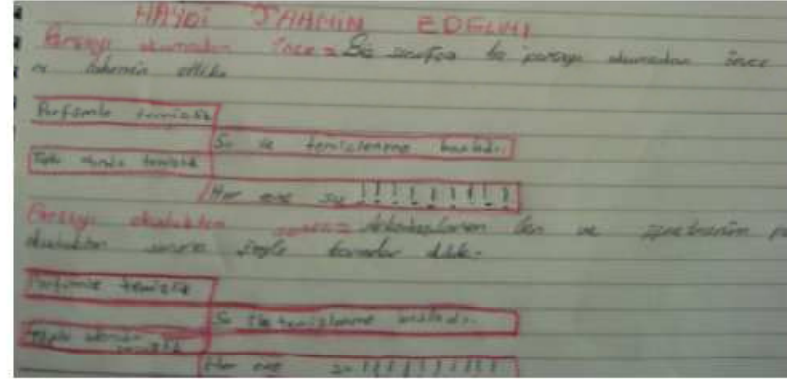 HAYDİ TAHMİN EDELİM!
Parçayı okumadan önce = Biz sınıfca bu parçayı okumadan önce
tahmin ettik.
Parfümle temizlik
Su ile temizlenme başladı.
Toplu alanda temizlik
Her eve su !!!!!!!!!
Parçayı okuduktan sonra = Arkadaşlarım ben ve öğretmenim
okuduktan sonra şöyle
Parfümle temizlik
Su ile temizlenme başladı.
Toplu alanda temizlik
Her eve su !!!!!!!!